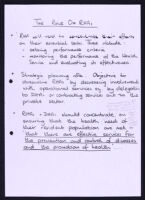 THE ROLE OF RHAs
• RHA will now to concentrate their efforts
on their essential tasks. These include
- setting performance criteria
- monitoring the performance of the Health
Service and evaluating its effectiveness
• Strategic planning role. Objective to
streamline RHAs by decreasing involvement
with operational services eg by delegation
to DHAs or contracting services out to the
private sector.
• RHAs + DHAs should concentrate on
ensuring that the health needs of
their resident population are met -
that there are effective services for
the prevention and control of diseases
and the promotion of health.